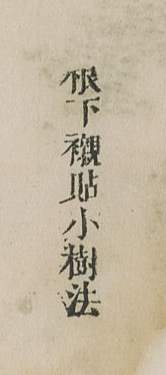 根下襯貼小樹法